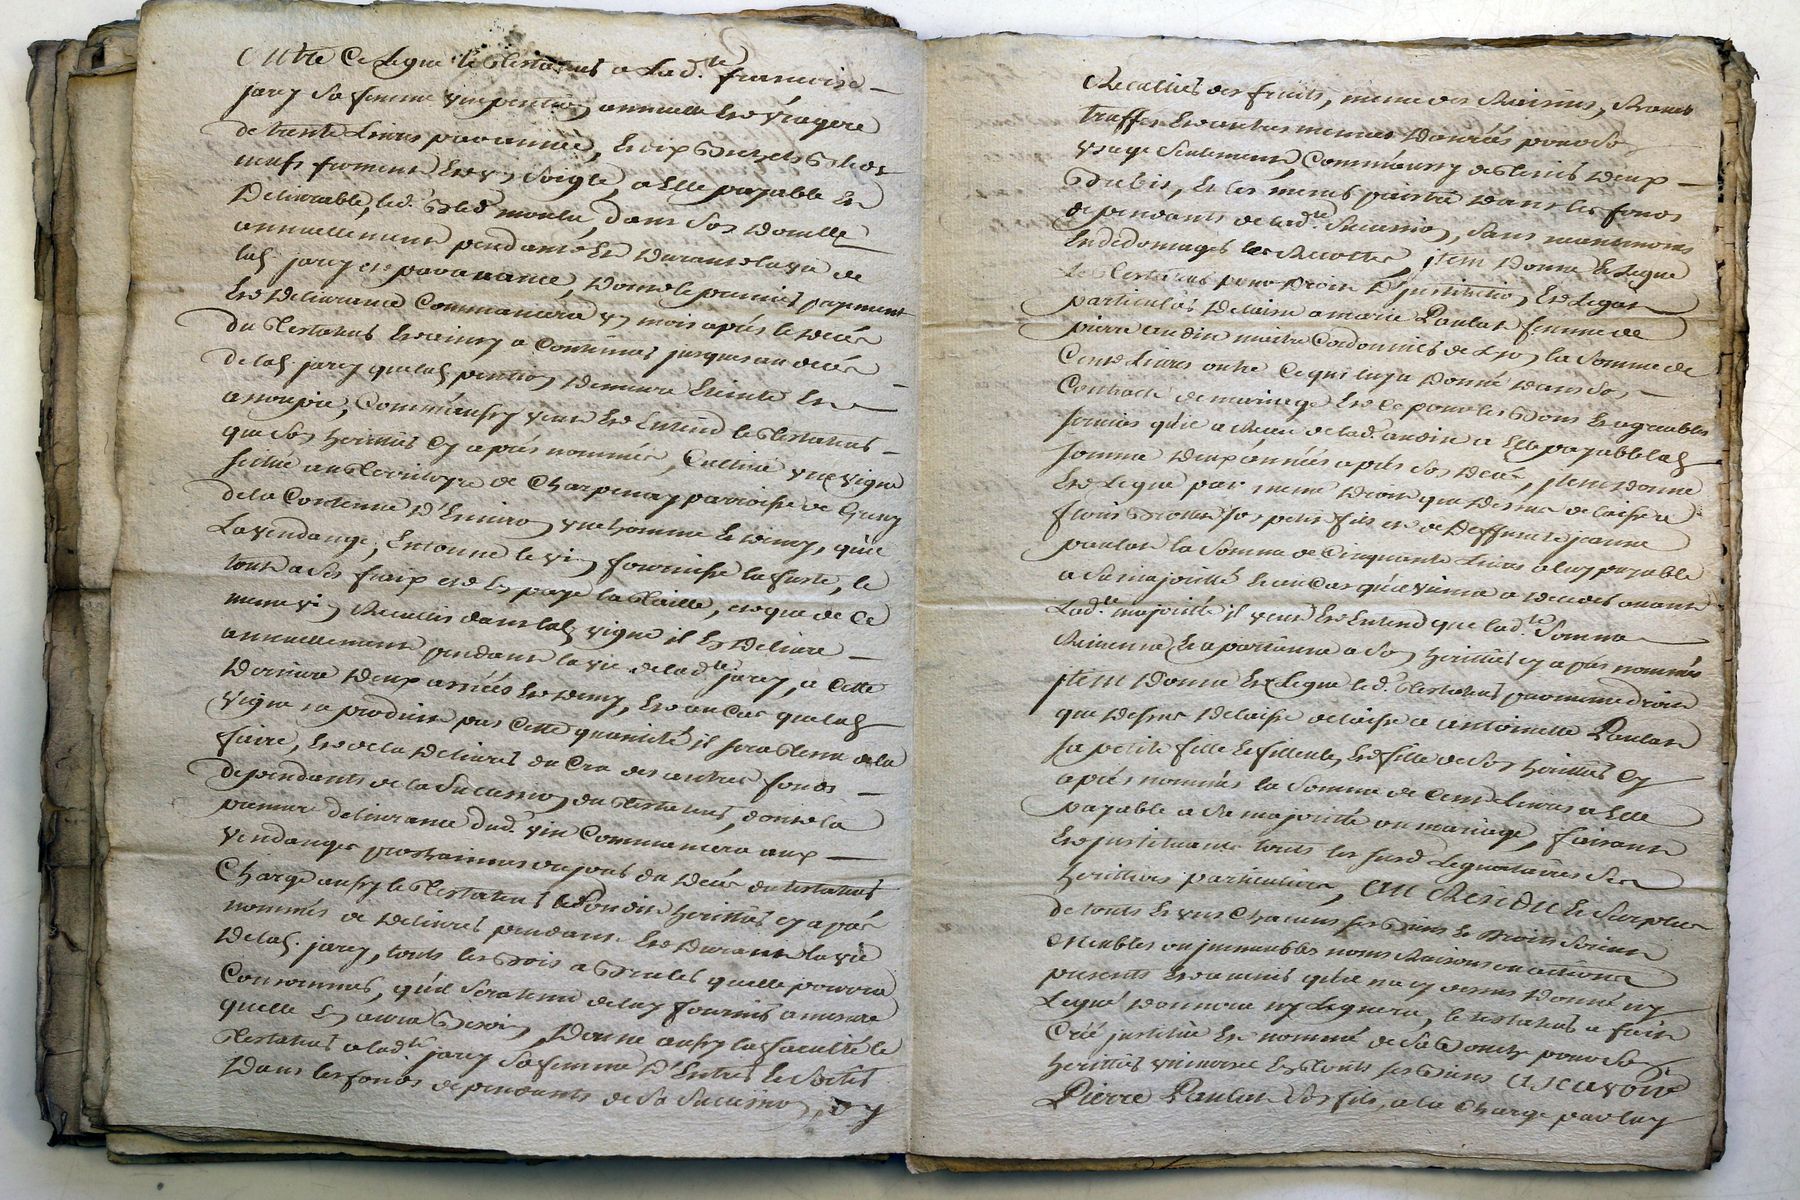 Outre ce legue le testateur a lad.te francoise
jarey sa femme une pention annuelle et viagere
de trente livres par année, et dix bichets bled
neufs froment et soigle, a elle payable et
delivrable, led. bled moulu, dans son domille
annuellement pendant et durant la vie de
lad. jarey et par avance, dont le premier payement
et delivrance commancera un mois après le décès
du testateur et ainsy a continuer jusques au décès
de lad. jarey que lad. pention demeura éteinte et
assoupie, comm'aussy veut et entend le testateur
que son heritier cy après nommée, cultive une vigne
scitué au territoyre de Charpenay parroisse de
de la contenue d'environ une homme et demy, qu'il
la vendange, entonne le vin, fournisse la futte, le
tout a ses fraix et en paye la taille, et que de ce
meme vin recueilli dans lad. vigne il en delivre
annuellement pendant la vie de lad.te jarey, a cette
derniere deux années et demy, et au cas que lad.
vigne ne produise pas cette quantité il sera tenu de la
faire, et de la delivrer du cru des autres fonds
dependants de la succession du testateur, dont la
premiere delivrance dud. vin commancera aux
vendanges prochaines du jour du décès du testateur
Charge aussy le testateur sondit heritier cy après
nommés de delivrer pendant et durant la vie
de lad. jarey, touts les bois a bruler qu'elle pourra
consommer, qu'il sera tenu de luy fournir a mesure
quelle en aura besoin, Donne aussy la faculté le
testateur a lad.te jarey sa femme d'entrer et sortir
dans les fonds dependants de sa succession, d'y
Recullir des fruits, meme des raisins, raves
truffes et autres menües danrées pour son
usage seulement, comm'aussy de tenir deux
brebis, et les mener paistre dans les fonds
dependants de lad.te succession, sans neantmoins
endedomager les recoltes, jtem donne et legue
le testateur pour droit d'institution et legat
particulier delaisse a marie Paulat femme de
pierre audin maitre cordonnier de Lyon la somme de
cent livres outre ce qui luy a donné dans son
contract de mariage et ce pour les bons et agreables
services qu'il a receu de lad. audin a elle payable lad.
somme deux années après son décès, jtem donne
et legue par meme droit que dessus delaisse a
son petit fils et de deffunte jeanne
paulat la somme de cinquante livres a luy payable
a sa majorité et au cas qu'il vienne a deceder avant
lad.te majorité il veut et entend que lad.te somme
revienne et apartienne a son heritier cy après nommés
jtem donne et legue led. testateur par meme droit
que dessus delaisse delaisse a antoinette Paulat
sa petite fille et fillieule, et fille de son heritier cy
après nommés la somme de cent livres a elle
payable a sa majorité ou mariage, faisant
et jnstituant touts les susd. legataires ses
heritiers particuliers, au Residu et surplus
de touts et uns chacuns ses biens et droits soient
meubles ou jmmeubles noms raisons ou actions
presents et avenir qu'il na cy dessus donné ny
legué donnera ny leguera, le testateur a fait
créé jnstitué et nommé de sa bouche pour son
heritier universel en touts ses biens ascavoir
Pierre Paulat son fils, a la charge par luy